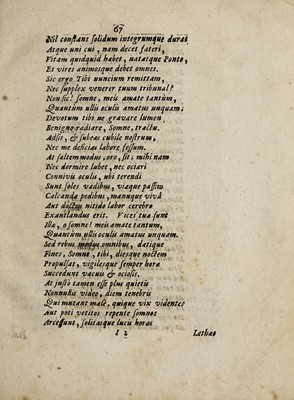 67
Nil constans solidum integrumque durat
Atque uni cui, nam deces fateri,
Vitam quidquid habet, natatque Ponto,
Et vires animosque debet omnes.
Sic ergo Tibi nuncium remittam,
Nec supplex venerer tuum tribunal?
Non sic! somne, meis amate tantum,
Quantum ullis oculis amatus unquam;
Devotum tibi ne gravare lumen
Benigno radiare, Somne, tractu.
Adsis, & subeas cubile nostrum,
Nec me deficias labore fessum.
At saltem modus, oro, sit: mihi nam
Nec dormire lubet, nec ociari
Connivis oculis, ubi terendi
Sunt soles vadibus, viaque passim
Calcanda pedibus, manuque vivâ
Aut doctus nitido labor cerebro
Exantlandus erit. Vices tua sunt
Illa, o somne! meis amate tantum,
Quantum ullis oculis amatus unquam.
Sed rebus modus omnibus, datique
Fines, Somne, tibi, diesque noctem
Propulsat, vigilesque semper hora
Succedunt vacuis & ociosis.
At justò tamen esse plus quietis
Nonnullis video, diem tenebris
Qui mutant malè, quique vix videntes
Aut poti vetitos repente somnos
Arcessunt, solitasque lucis horas
I 2 Lethao